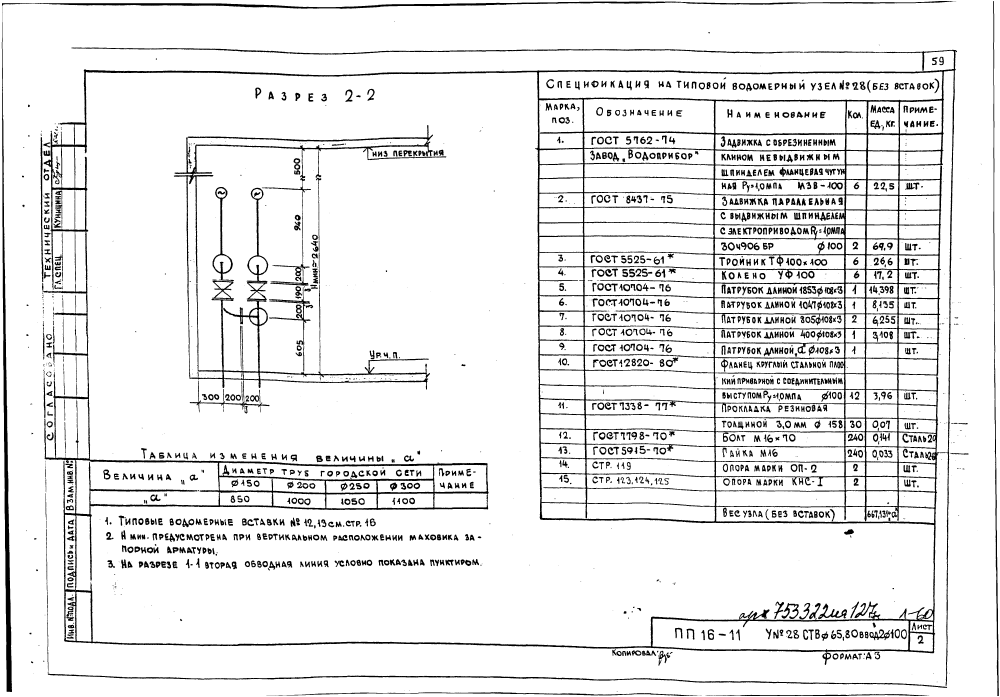 59
РАЗРЕЗ 2-2
НИЗ ПЕРЕКРЫТИЯ
500
940
Hмин=2640
200
190
3
200
605
Ур.ч.п.
300 200 200
3
ТАБЛИЦА ИЗМЕНЕНИЯ ВЕЛИЧИНЫ „а"
ВЕЛИЧИНА „а" ДИАМЕТР ТРУБ ГОРОДСКОЙ СЕТИ ПРИМЕ-
ф150 ф200 ф250 ф300 ЧАНИЕ
„а" 850 1000 1050 1100
1. ТИПОВЫЕ ВОДОМЕРНЫЕ ВСТАВКИ №12,13 СМ. СТР. 16
2. H МИН. ПРЕДУСМОТРЕНА ПРИ ВЕРТИКАЛЬНОМ РАСПОЛОЖЕНИИ МАХОВИКА ЗА-
ПОРНОЙ АРМАТУРЫ.
3. НА РАЗРЕЗЕ 1-1 ВТОРАЯ ОБВОДНАЯ ЛИНИЯ УСЛОВНО ПОКАЗАНА ПУНКТИРОМ.
СПЕЦИФИКАЦИЯ НА ТИПОВОЙ ВОДОМЕРНЫЙ УЗЕЛ №28 (БЕЗ ВСТАВОК)
МАРКА, ПОЗ. ОБОЗНАЧЕНИЕ НАИМЕНОВАНИЕ КОЛ. МАССА ЕД., КГ. ПРИМЕ-ЧАНИЕ.
1. ГОСТ 5762-74 ЗАДВИЖКА С ОБРЕЗИНЕННЫМ
ЗАВОД „ВОДОПРИБОР" КЛИНОМ НЕВЫДВИЖНЫМ
ШПИНДЕЛЕМ ФЛАНЦЕВАЯ ЧУГУН
НАЯ Ру=1,0МПА МЗВ-100 6 22,5 ШТ.
2. ГОСТ 8437-75 ЗАДВИЖКА ПАРАЛЛЕЛЬНАЯ
С ВЫДВИЖНЫМ ШПИНДЕЛЕМ
С ЭЛЕКТРОПРИВОДОМ Ру=1,0МПА
30Ч906БР ф100 2 69,9 ШТ.
3. ГОСТ 5525-61* ТРОЙНИК ТФ 100×100 6 26,6 ШТ.
4. ГОСТ 5525-61* КОЛЕНО УФ 100 6 17,2 ШТ.
5. ГОСТ 10704-76 ПАТРУБОК ДЛИНОЙ 1853ф108×3 1 14,398 ШТ.
6. ГОСТ 10704-76 ПАТРУБОК ДЛИНОЙ 1047ф108×3 1 8,135 ШТ.
7. ГОСТ 10704-76 ПАТРУБОК ДЛИНОЙ 805ф108×3 2 6,255 ШТ.
8. ГОСТ 10704-76 ПАТРУБОК ДЛИНОЙ 400ф108×3 1 3,108 ШТ.
9. ГОСТ 10704-76 ПАТРУБОК ДЛИНОЙ „а" ф108×3 1 ШТ.
10. ГОСТ 12820-80* ФЛАНЕЦ КРУГЛЫЙ СТАЛЬНОЙ ПЛОС
КИЙ ПРИВАРНОЙ С СОЕДИНИТЕЛЬНЫМ
ВЫСТУПОМ Ру=1,0МПА ф100 12 3,96 ШТ.
11. ГОСТ 7338-77* ПРОКЛАДКА РЕЗИНОВАЯ
ТОЛЩИНОЙ 3,0мм ф 158 30 0,07 ШТ.
12. ГОСТ 7798-70* БОЛТ М16×70 240 0,141 СТАЛЬ 20
13. ГОСТ 5915-70* ГАЙКА М16 240 0,033 СТАЛЬ 20
14. СТР. 119 ОПОРА МАРКИ ОП-2 2 ШТ.
15. СТР. 123,124,125 ОПОРА МАРКИ КНС-I 2 ШТ.
ВЕС УЗЛА (БЕЗ ВСТАВОК)
ТЕХНИЧЕСКИЙ ОТДЕЛ
ГЛ. СПЕЦ. КУНИЦИНА
СОГЛАСОВАНО
ВЗАМ. ИНВ. №
ПОДПИСЬ И ДАТА
ИНВ. № ПОДЛ.
л-60
ПП 16-11 У№28 СТВф65,80 ВВОД2ф100 ЛИСТ
2
КОПИРОВАЛ:
ФОРМАТ: А3